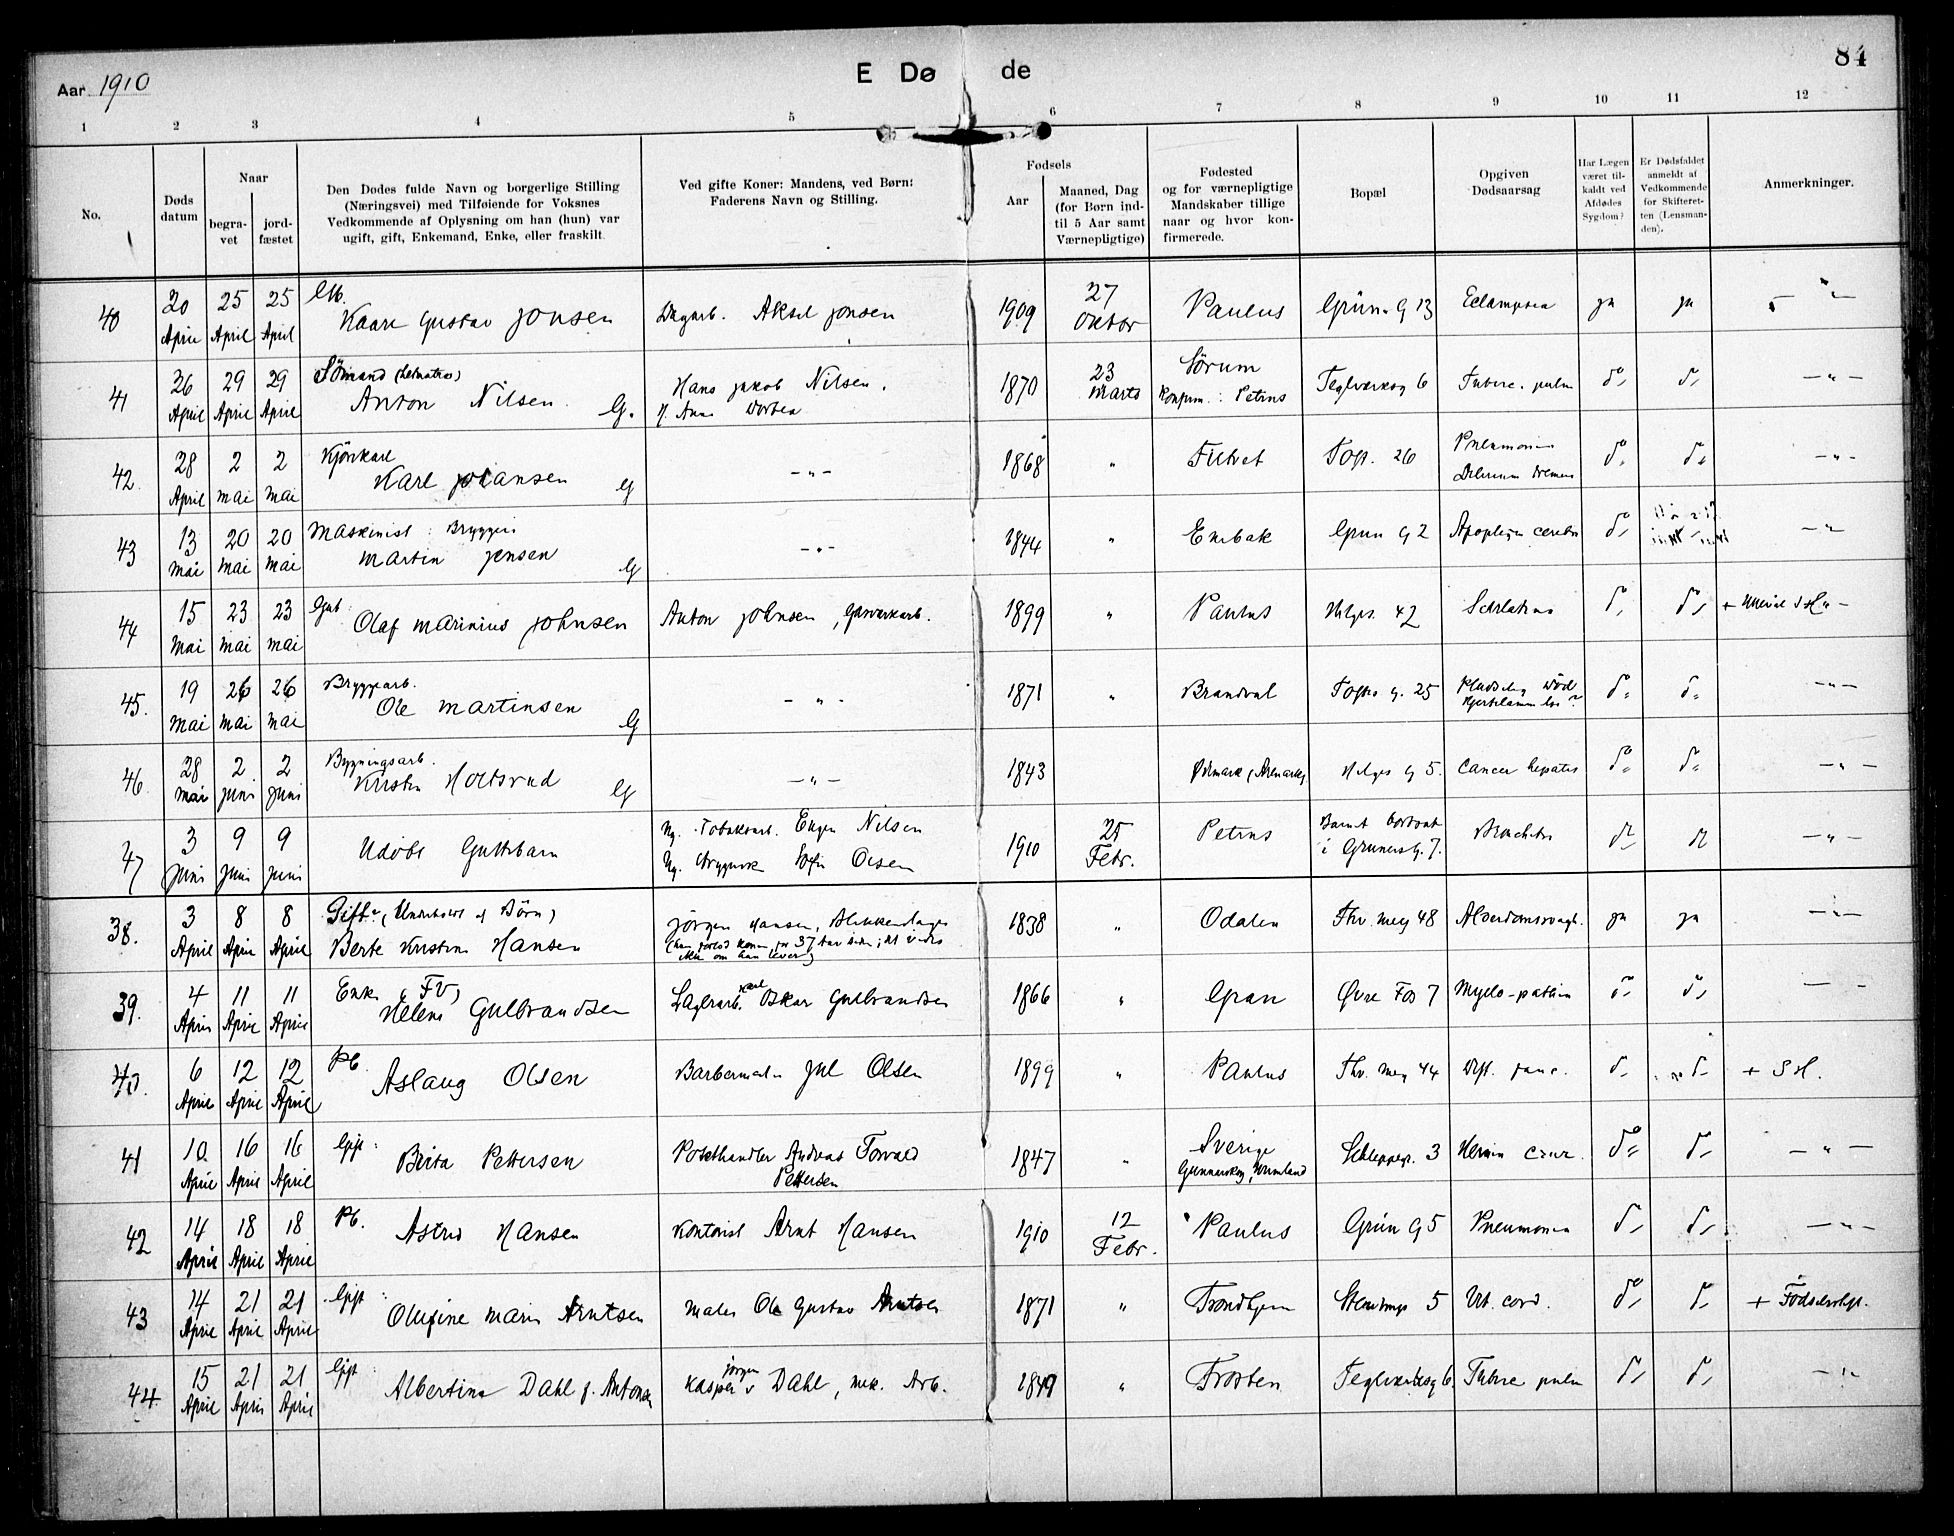 Aar 1910
E Dø de
84
1 2 3 4 5 6 7 8 9 10 11 12
No.
Døds datum
Naar
begra-vet
jord-fæstet
Den Dødes fulde Navn og borgerlige Stilling
(Næringsvei) med Tilføiende for Voksnes
Vedkommende af Oplysning om han (hun) var
ugift, gift, Enkemand, Enke, eller fraskilt.
Ved gifte Koner: Mandens, ved Børn:
Faderens Navn og Stilling.
Fødsels
Aar
Maaned, Dag
(for Børn ind-
til 5 Aar samt
Værnepligtige)
Fødested
og for værnepligtige
Mandskaber tillige
naar og hvor kon-
firmerede.
Bopæl
Opgiven
Dødsaarsag
Har Lægen
været til-
kaldt ved
Afdødes
Sygdom?
Er Dødsfaldet
anmeldt af
Vedkommende
for Skifteret-
ten (Lensman-
den).
Anmerkninger.
40 20 April 25 April 25 April Kaare Gustav Jonsen Dagarb. Aksel Jonsen 1909 27 Oktbr Paulus Grün. G 13 Eclampsia ja ja - " -
41 26 April 29 April 29 April Sømand (Letmatros) Anton Nilsen. G. Hans Jakob Nilsen. 1870 23 Marts Sørum Konfirm.: Petrus Teglverksg 6 Tuberc. pulm do do - " -
42. 28 April 2 Mai 2 Mai Kjørekarl Karl Johansen G - " - 1868 " Tof. 26 Pneumonia Delirium tremens do do - " -
43 13 Mai 20 Mai 20 Mai Maskinist Bryggeri Martin Jensen G - " - 1844 " Enebak Grün G 2 Apoplexia cerebri do - " -
44 15 Mai 23 Mai 23 Mai Gut Olaf Marinius Johnsen Anton Johnsen, Gasverkarb. 1899 " Paulus Helges. 42 Scarlatina do do
45. 19 Mai 26 Mai 26 Mai Bryggarb. Ole Martinsen G - " - 1871 " Brandval Tofte g. 25 Pludselig Død Hjertelammelse? do do - " -
46 28 Mai 2 Juni 2 Juni Bygningsarb. Kristen Holtsrud G - " - 1843 Helges G 5. Cancer hepatis do do - " -
47 3 Juni 9 Juni 9 Juni Udøbt Guttebarn Ug. Tobaksarb. Eugen Nilsen Ug. Sofie Olsen 1910 25 Febr. Petrus Barnet bortsat i Grünersg. 7. do do - " -
38. 3 April 8 April 8 April Gift Berte Kristine Hansen Jørgen Hansen, (han forlod konen for 37 Aar siden; det vides ikke om han lever) 1838 " Odalen Thv. Mey 48 ja ja - " -
39. 4 April 11 April 11 April Enke (FV) Helene Gulbrandsen Lagerarb. Karl Oskar Gulbrandsen 1866 " Gran Øvre Fos 7 Myelo-pathia do do - -
40. 6 April 12 April 12 April Pb. Aslaug Olsen Barberm. Jul Olsen 1899 " Paulus Thv. Mey 44 Dift. fauc. do do + S H.
41 10. April 16 April 16 April Gift Berta Pettersen Potethandler Andreas Torvald Pettersen 1847 " Sverige Gunnarskog, Wermland Schleppegr. 3 Hernia crur. do do - " -
42 14 April 18 April 18 April Pb. Astrid Hansen Kontorist Arnt Hansen 1910 12 Febr. Paulus Grün G 5 Pneumonia do do - " -
43 14 April 21 April 21 April Gift Olufine Marie Arntsen Maler Ole Gustav Arntsen 1871 " Trondhjem Steenstrups 5 Vit. cord. do do + Fødselsstift.
44. 15 April 21 April 21 April Gift Albertine Dahl f. Antonsen Kasper Jørgen Dahl, mek. Arb. 1849 " Frosten Teglverksg 6. Tuberc pulm do do - " -